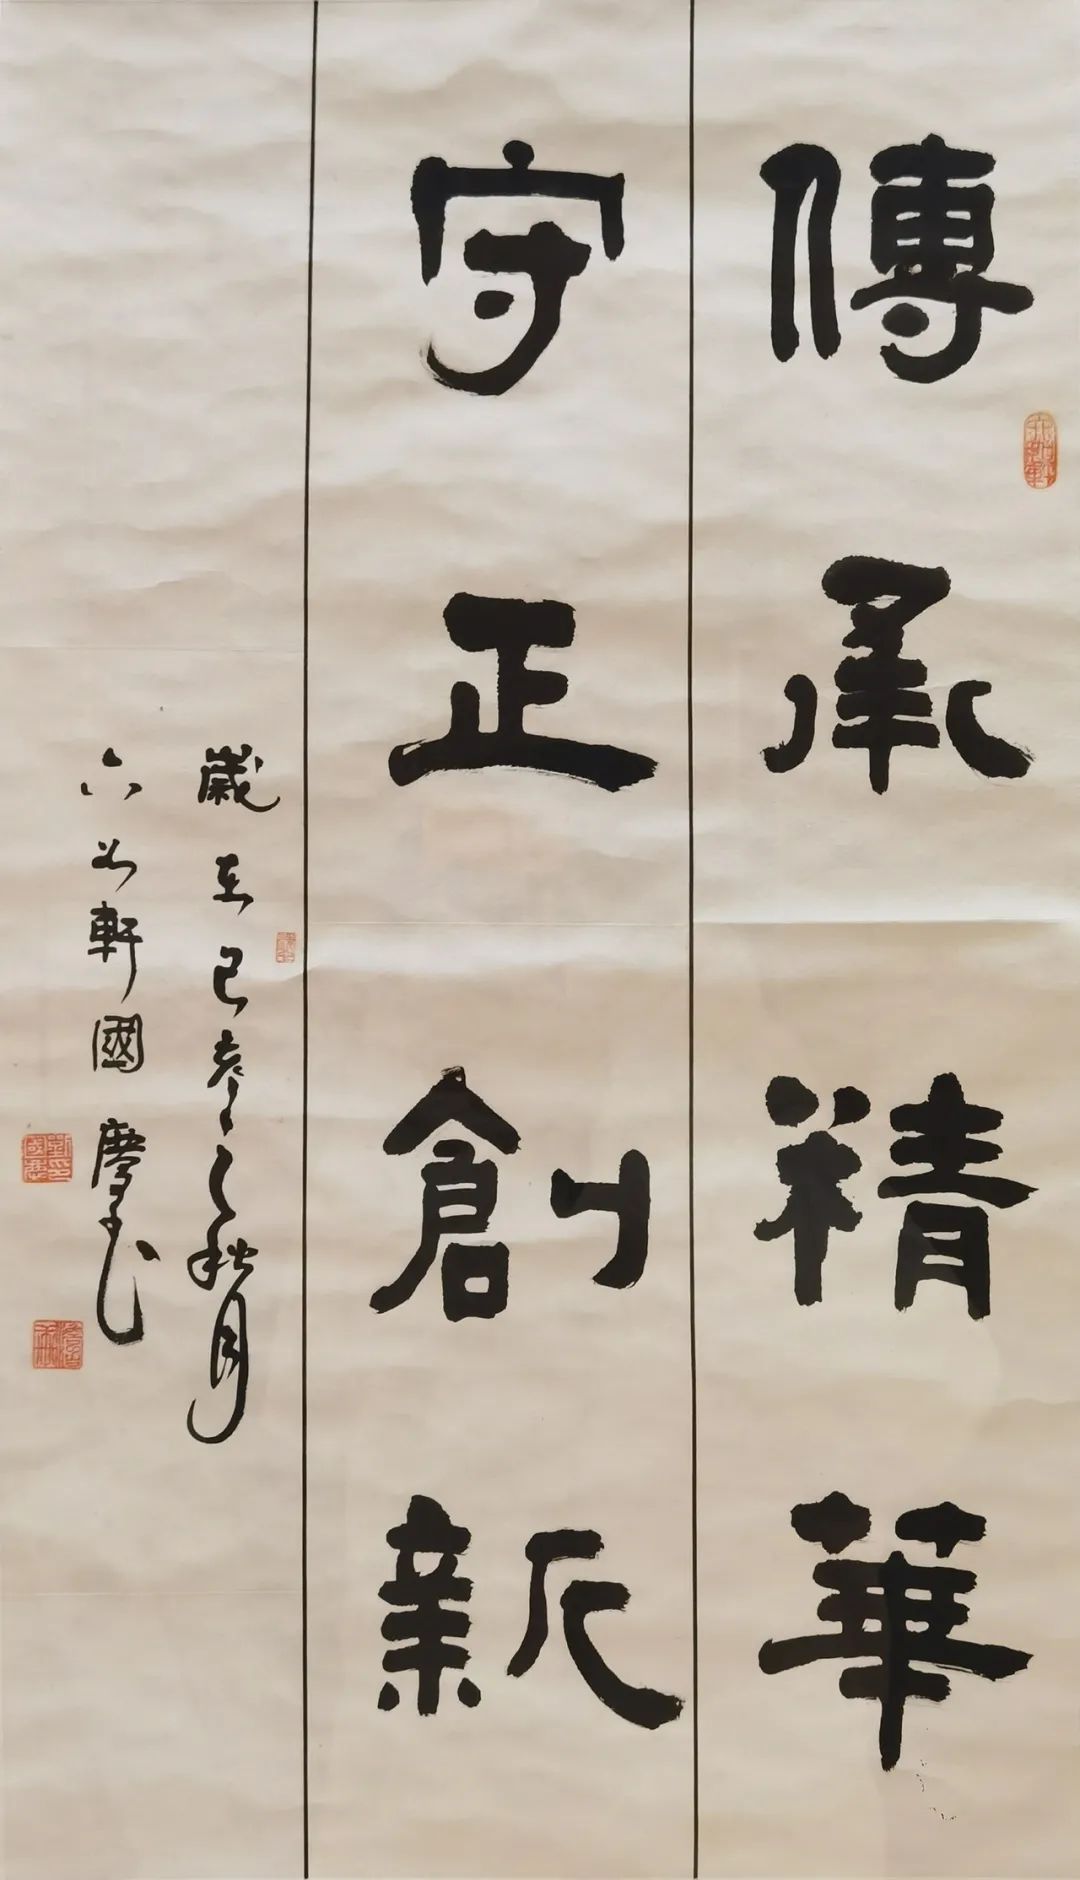 傳承精華
守正創新
歲在己亥之秋月
六如軒國慶书